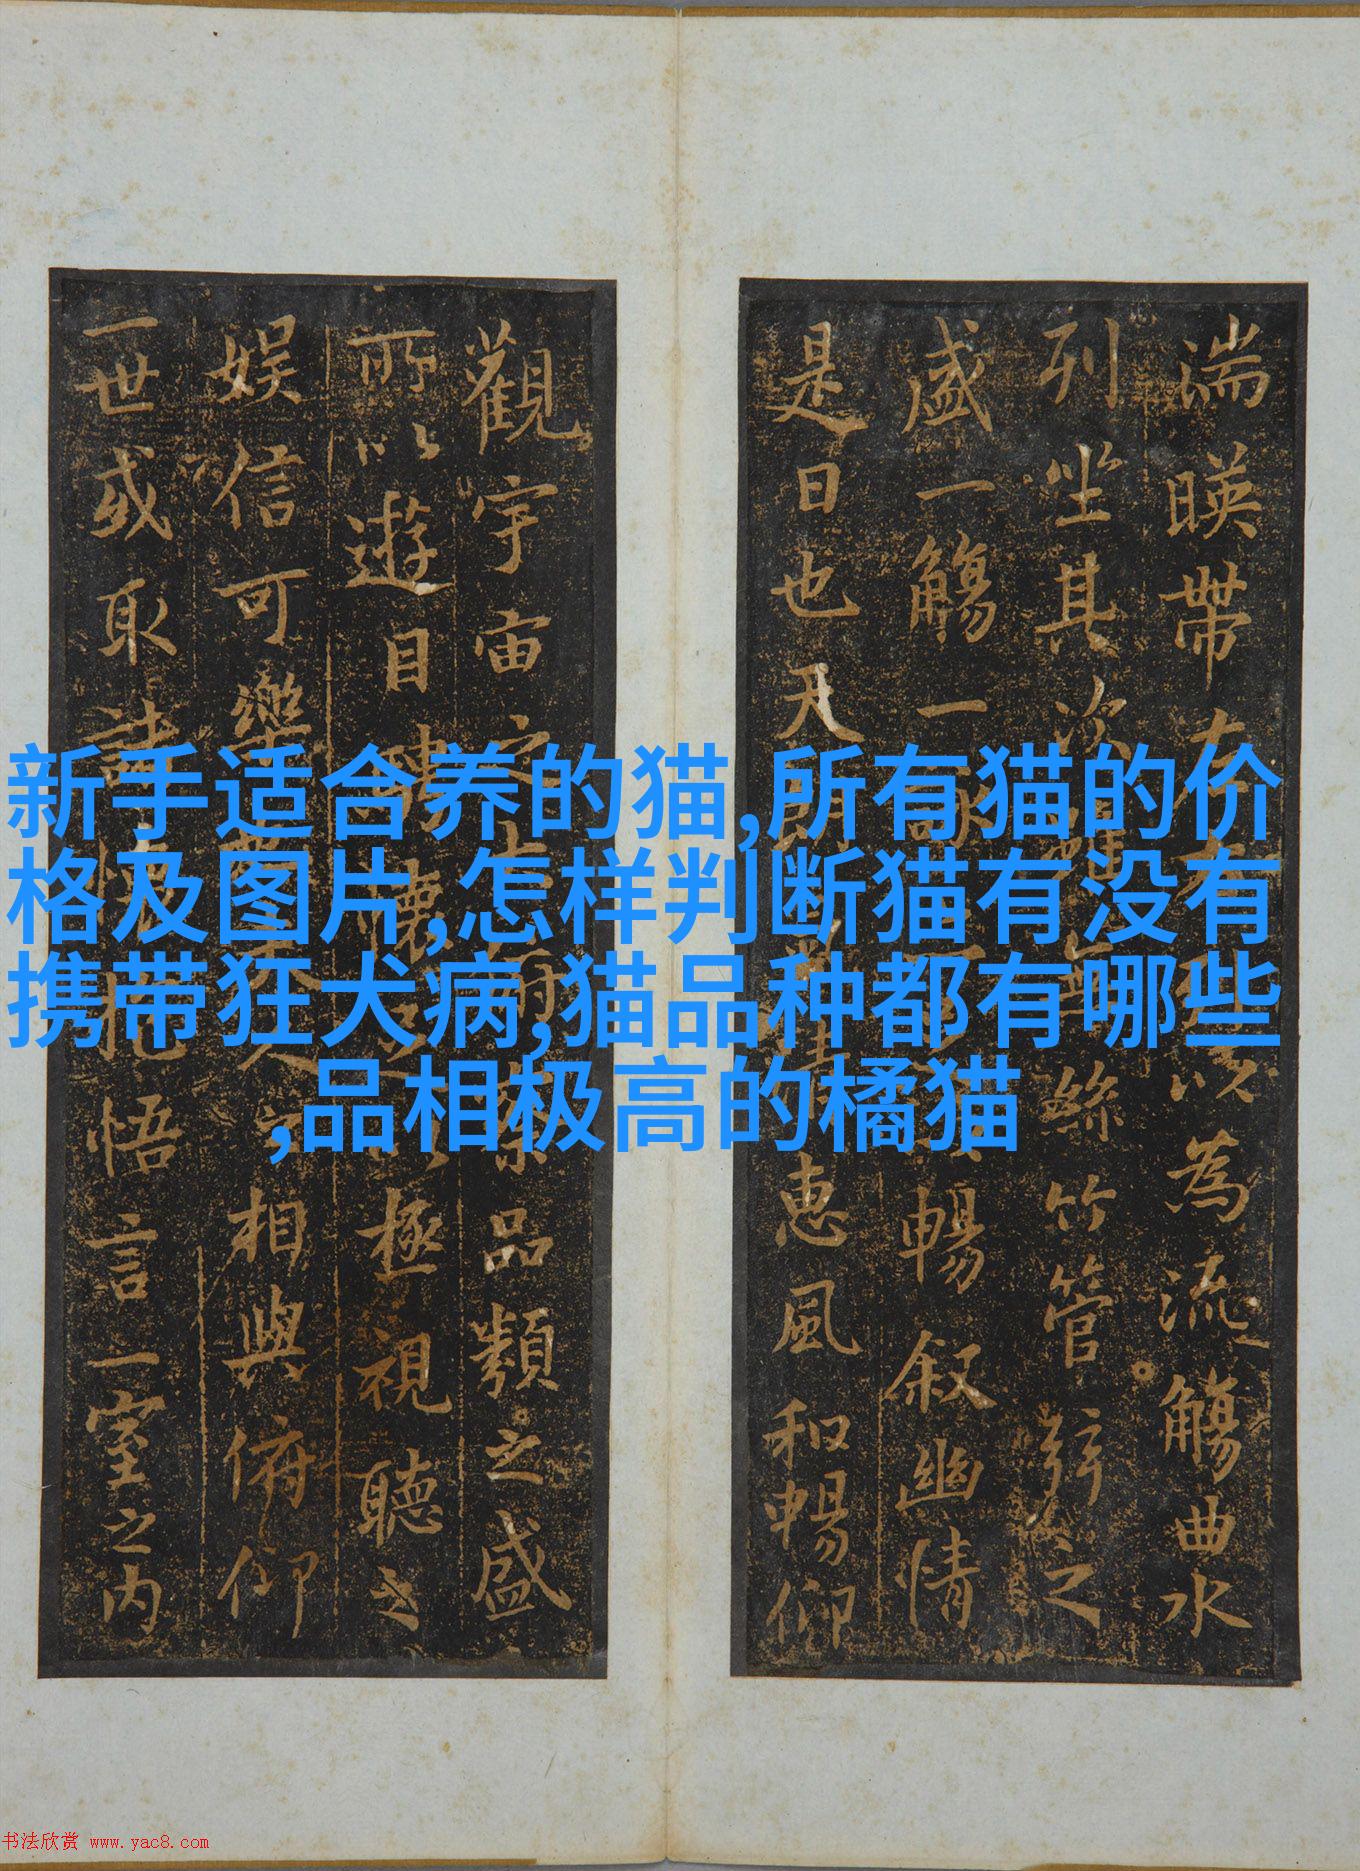 新手适合养的猫,所有猫的价
格及图片,怎样判断猫有没有
携带狂犬病,猫品种都有哪些
,品相极高的橘猫
湍暎帶左 以為流觴曲水
列坐其次 絲竹管弦之
盛一觴一 暢叙幽情
是日也天朗 惠風和暢仰
觀宇宙之 品類之盛
所以遊目騁懷 極視聽之
娱信可樂 人 相與俯仰
一世或取諸懷抱悟言一室之内
书法欣赏 www.yac8.com